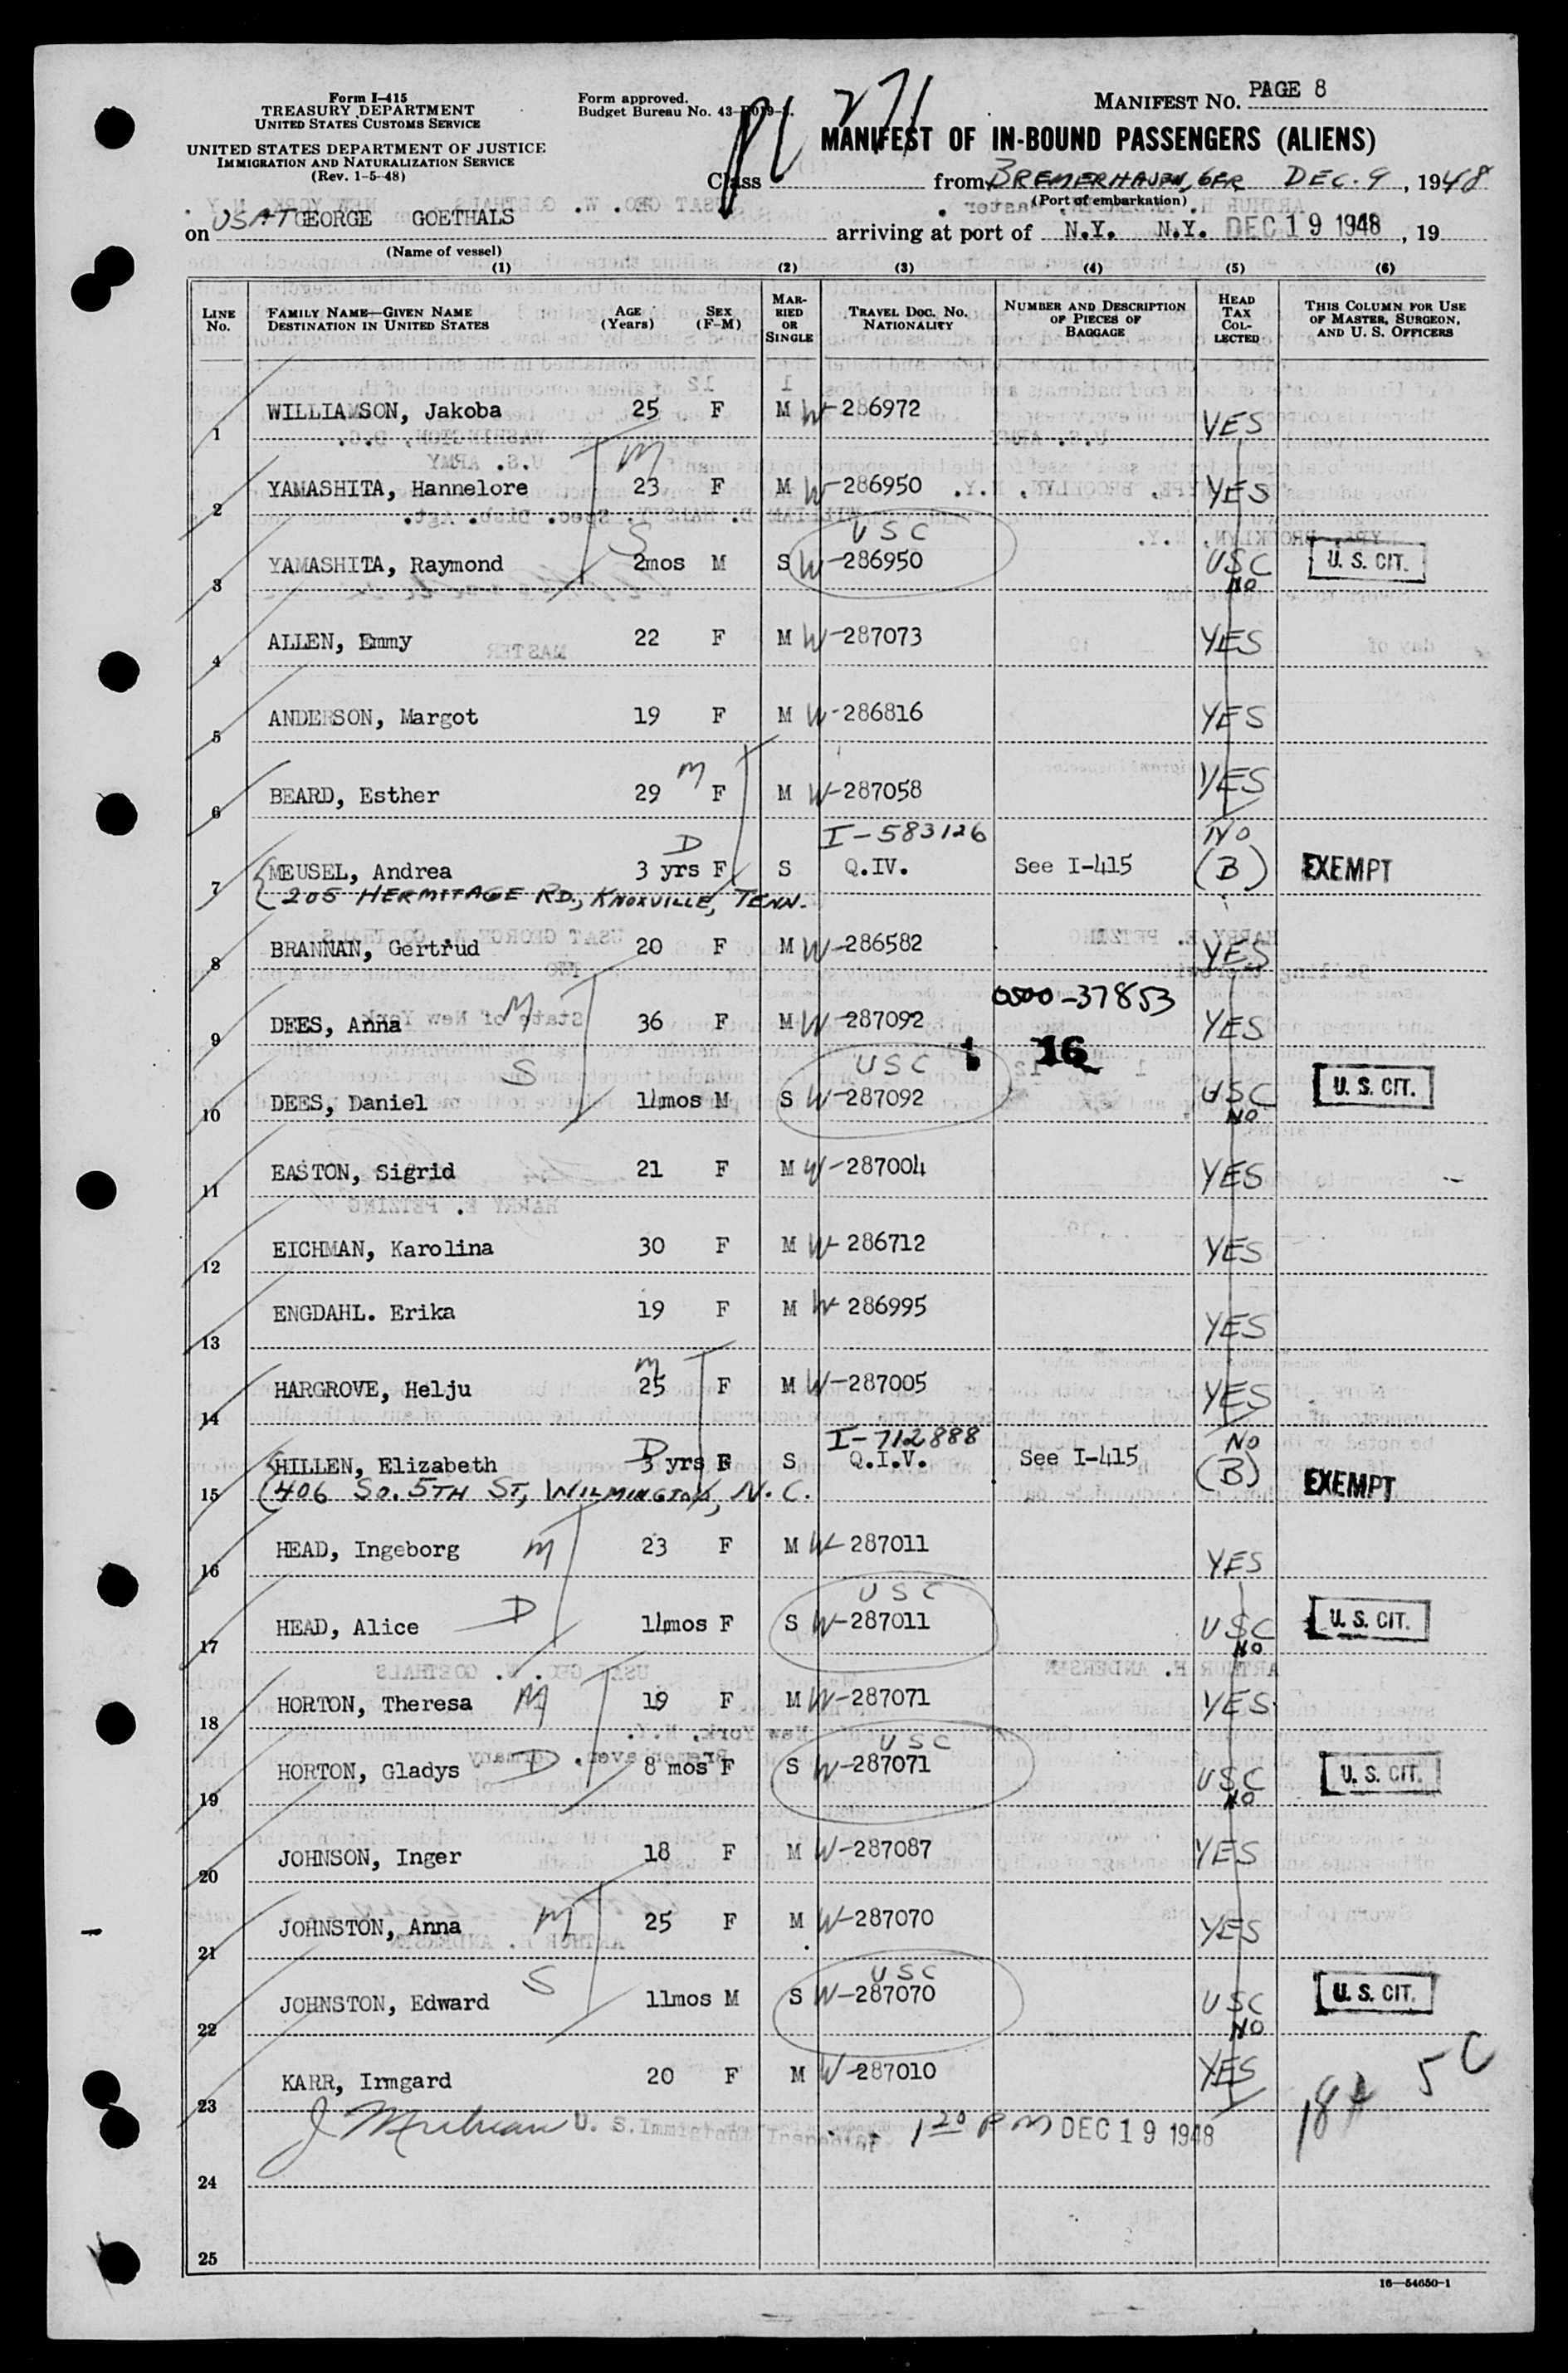 Form I-415
TREASURY DEPARTMENT
UNITED STATES CUSTOMS SERVICE
UNITED STATES DEPARTMENT OF JUSTICE
IMMIGRATION AND NATURALIZATION SERVICE
(Rev. 1-5-48)
Form approved.
Budget Bureau No. 43-R019-
271
MANIFEST NO. PAGE 8
MANIFEST OF IN-BOUND PASSENGERS (ALIENS)
Class from BREMERHAVEN, GER DEC. 9, 1948
(Port of embarkation)
on USAT GEORGE GOETHALS arriving at port of N.Y. N.Y. DEC 19 1948, 19
(Name of vessel)
(1) (2) (3) (4) (5) (6)
LINE No. FAMILY NAME—GIVEN NAME DESTINATION IN UNITED STATES AGE (Years) SEX (F-M) MARRIED OR SINGLE TRAVEL DOC. NO. NATIONALITY NUMBER AND DESCRIPTION OF PIECES OF BAGGAGE HEAD TAX COLLECTED THIS COLUMN FOR USE OF MASTER, SURGEON, AND U. S. OFFICERS
1 WILLIAMSON, Jakoba 25 F M W-286972 YES
M
2 YAMASHITA, Hannelore 23 F M W-286950 YES
S USC
3 YAMASHITA, Raymond 2mos M S W-286950 USC NO U. S. CIT.
4 ALLEN, Emmy 22 F M W-287073 YES
5 ANDERSON, Margot 19 F M W-286816 YES
M
6 BEARD, Esther 29 F M W-287058 YES
D I-583126 NO
7 MEUSEL, Andrea 3 yrs F S Q.IV. See I-415 (B) EXEMPT
205 HERMITAGE RD., KNOXVILLE, TENN.
8 BRANNAN, Gertrud 20 F M W-286582 YES
0500-37853
9 DEES, Anna M 36 F M W-287092 YES
16
S USC
10 DEES, Daniel 14mos M S W-287092 USC NO U. S. CIT.
11 EASTON, Sigrid 21 F M W-287004 YES
12 EICHMAN, Karolina 30 F M W-286712 YES
13 ENGDAHL. Erika 19 F M W-286995 YES
M
14 HARGROVE, Helju 25 F M W-287005 YES
D I-712888 NO
15 HILLEN, Elizabeth 3 yrs F S Q.I.V. See I-415 (B) EXEMPT
406 SO. 5TH ST, WILMINGTON, N.C.
16 HEAD, Ingeborg M 23 F M W-287011 YES
USC
17 HEAD, Alice D 14mos F S W-287011 USC NO U. S. CIT.
18 HORTON, Theresa M 19 F M W-287071 YES
USC
19 HORTON, Gladys D 8 mos F S W-287071 USC NO U. S. CIT.
20 JOHNSON, Inger 18 F M W-287087 YES
21 JOHNSTON, Anna M 25 F M W-287070 YES
USC
22 JOHNSTON, Edward S 11mos M S W-287070 USC NO U. S. CIT.
23 KARR, Irmgard 20 F M W-287010 YES
18A 5C
U. S. Immigrant Inspector 1 20 PM DEC 19 1948
24
25
16—54650-1